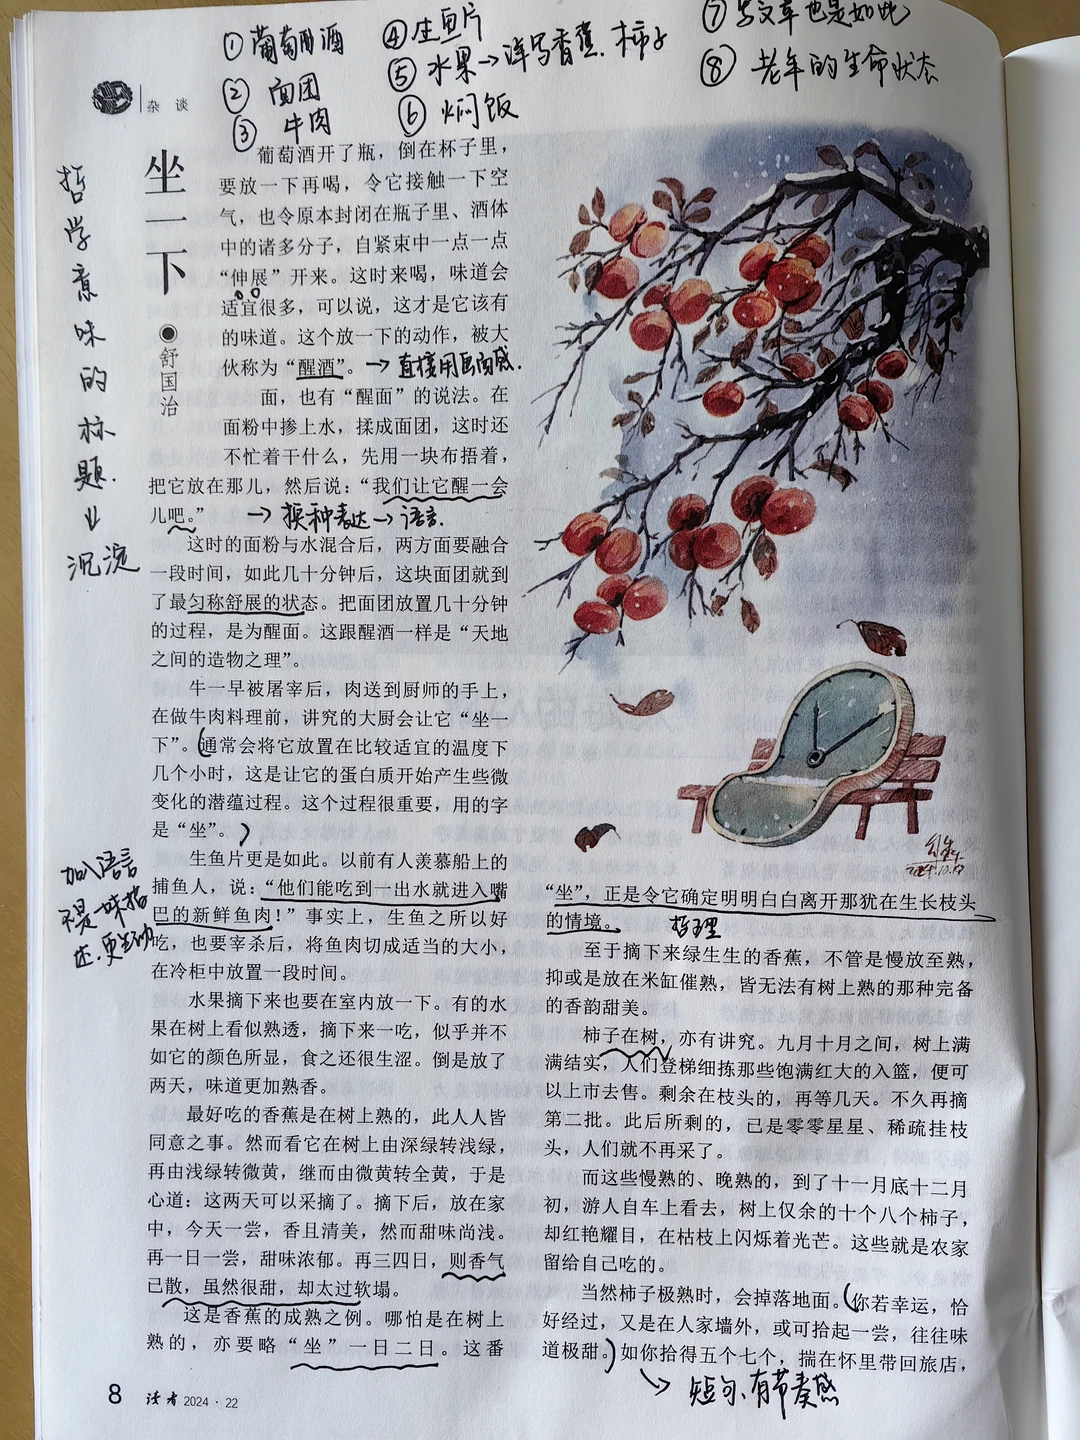 ①葡萄酒
②面团
③牛肉
④生鱼片
⑤水果→详写香蕉、柿子
⑥焖饭
⑦写文章也是如此
⑧老年的生命状态
杂 谈
坐一下
●舒国治
哲学意味的标题.
沉淀
葡萄酒开了瓶，倒在杯子里，
要放一下再喝，令它接触一下空
气，也令原本封闭在瓶子里、酒体
中的诸多分子，自紧束中一点一点
“伸展”开来。这时来喝，味道会
适宜很多，可以说，这才是它该有
的味道。这个放一下的动作，被大
伙称为“醒酒”。
→直接用画面感.
面，也有“醒面”的说法。在
面粉中掺上水，揉成面团，这时还
不忙着干什么，先用一块布捂着，
把它放在那儿，然后说：“我们让它醒一会
儿吧。”
→换种表达→语言.
这时的面粉与水混合后，两方面要融合
一段时间，如此几十分钟后，这块面团就到
了最匀称舒展的状态。把面团放置几十分钟
的过程，是为醒面。这跟醒酒一样是“天地
之间的造物之理”。
牛一早被屠宰后，肉送到厨师的手上，
在做牛肉料理前，讲究的大厨会让它“坐一
下”。通常会将它放置在比较适宜的温度下
几个小时，这是让它的蛋白质开始产生些微
变化的潜蕴过程。这个过程很重要，用的字
是“坐”。
生鱼片更是如此。以前有人羡慕船上的
捕鱼人，说：“他们能吃到一出水就进入嘴
巴的新鲜鱼肉！”事实上，生鱼之所以好
吃，也要宰杀后，将鱼肉切成适当的大小，
在冷柜中放置一段时间。
加入语言
不是一味描
述.更生动
水果摘下来也要在室内放一下。有的水
果在树上看似熟透，摘下来一吃，似乎并不
如它的颜色所显，食之还很生涩。倒是放了
两天，味道更加熟香。
最好吃的香蕉是在树上熟的，此人人皆
同意之事。然而看它在树上由深绿转浅绿，
再由浅绿转微黄，继而由微黄转全黄，于是
心道：这两天可以采摘了。摘下后，放在家
中，今天一尝，香且清美，然而甜味尚浅。
再一日一尝，甜味浓郁。再三四日，则香气
已散，虽然很甜，却太过软塌。
这是香蕉的成熟之例。哪怕是在树上
熟的，亦要略“坐”一日二日。这番
“坐”，正是令它确定明明白白离开那犹在生长枝头
的情境。
哲理
至于摘下来绿生生的香蕉，不管是慢放至熟，
抑或是放在米缸催熟，皆无法有树上熟的那种完备
的香韵甜美。
柿子在树，亦有讲究。九月十月之间，树上满
满结实，人们登梯细拣那些饱满红大的入篮，便可
以上市去售。剩余在枝头的，再等几天。不久再摘
第二批。此后所剩的，已是零零星星、稀疏挂枝
头，人们就不再采了。
而这些慢熟的、晚熟的，到了十一月底十二月
初，游人自车上看去，树上仅余的十个八个柿子，
却红艳耀目，在枯枝上闪烁着光芒。这些就是农家
留给自己吃的。
当然柿子极熟时，会掉落地面。你若幸运，恰
好经过，又是在人家墙外，或可拾起一尝，往往味
道极甜。如你拾得五个七个，揣在怀里带回旅店，
短句、有节奏感
8 读者 2024·22